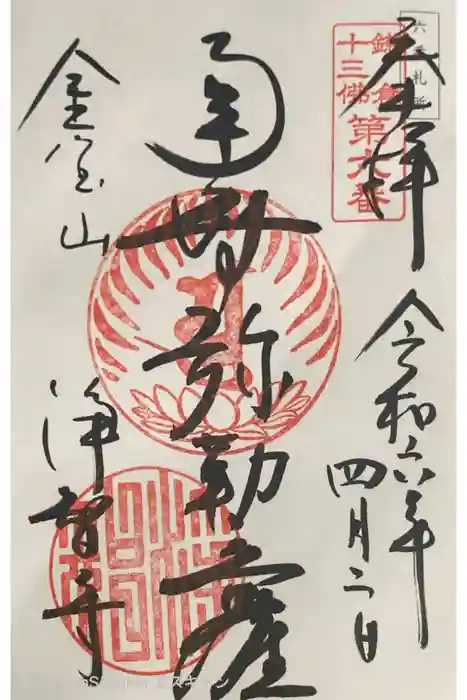 六番札所
鎌倉
十三佛
第六番
奉拝
令和六年
四月二日
南無弥勒菩薩
金宝山
浄智寺